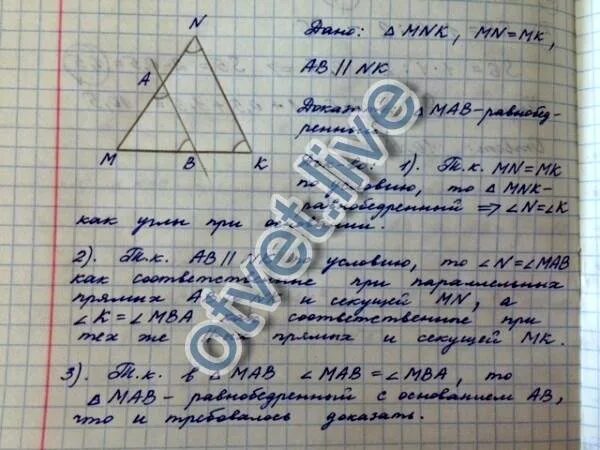 N
A
M
B
K
Дано: △ MNK, MN = MK,
AB || NK
△ MAB - равнобед-
ренный.
1). Т.к. MN = MK
по условию, то △ MNK -
равнобедренный ⇒ ∠N = ∠K
как углы при
2). Т.к. AB || по условию, то ∠N = ∠MAB
как соответственные при параллельных
прямых и секущей MN, а
∠K = ∠MBA соответственные при
тех же прямых и секущей MK.
3). Т.к. в △ MAB ∠MAB = ∠MBA, то
△ MAB - равнобедренный с основанием AB,
что и требовалось доказать.
otvet.live